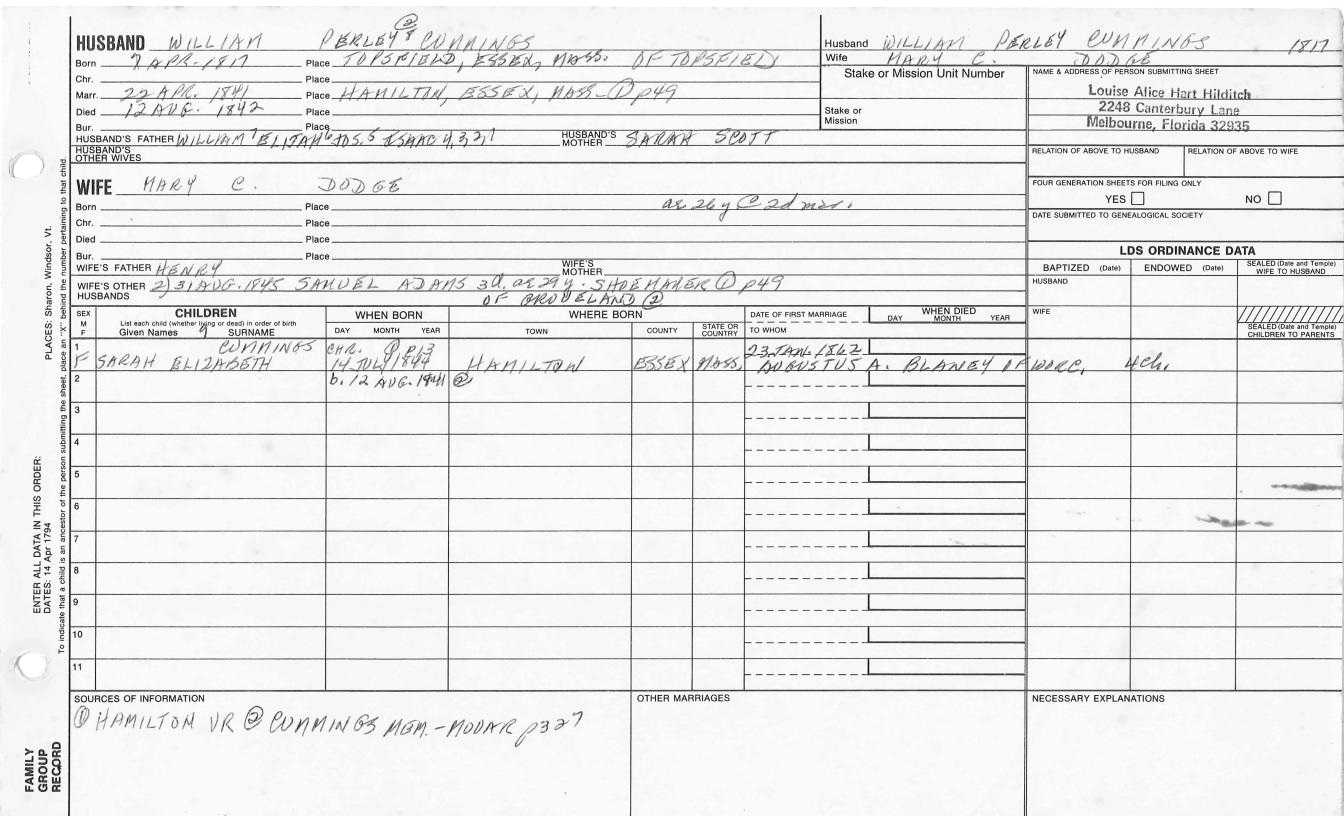 HUSBAND WILLIAM PERLEY 8 ② CUMMINGS
Born 7 APR. 1817 Place TOPSFIELD, ESSEX, MASS. OF TOPSFIELD
Chr. Place
Marr. 22 APR. 1841 Place HAMILTON, ESSEX, MASS - ① p49
Died 12 AUG. 1842 Place
Bur. Place
HUSBAND'S FATHER WILLIAM 7 ELIJAH 6 JOS. 5 ISAAC 4,3,2,1 HUSBAND'S MOTHER SARAH SCOTT
HUSBAND'S OTHER WIVES
WIFE MARY C. DODGE
Born Place ae 26y @ 2d mar.
Chr. Place
Died Place
Bur. Place
WIFE'S FATHER HENRY WIFE'S MOTHER
WIFE'S OTHER HUSBANDS 2) 31 AUG. 1845 SAMUEL ADAMS 3d, ae 29y. SHOEMAKER ① p49
OF GROVELAND ②
Husband WILLIAM PERLEY CUMMINGS 1817
Wife MARY C. DODGE
Stake or Mission Unit Number
Stake or Mission
NAME & ADDRESS OF PERSON SUBMITTING SHEET
Louise Alice Hart Hilditch
2248 Canterbury Lane
Melbourne, Florida 32935
RELATION OF ABOVE TO HUSBAND RELATION OF ABOVE TO WIFE
FOUR GENERATION SHEETS FOR FILING ONLY
YES NO
DATE SUBMITTED TO GENEALOGICAL SOCIETY
LDS ORDINANCE DATA
BAPTIZED (Date) ENDOWED (Date) SEALED (Date and Temple) WIFE TO HUSBAND
HUSBAND
WIFE
SEALED (Date and Temple) CHILDREN TO PARENTS
SEX M F CHILDREN WHEN BORN WHERE BORN DATE OF FIRST MARRIAGE WHEN DIED
List each child (whether living or dead) in order of birth
Given Names 9 SURNAME DAY MONTH YEAR TOWN COUNTY STATE OR COUNTRY TO WHOM DAY MONTH YEAR
1 CUMMINGS CHR. ① p13 23 JAN. 1862
F SARAH ELIZABETH 14 JULY 1844 HAMILTON ESSEX MASS. AUGUSTUS A. BLANEY OF WORC. 4 Ch.
2 b. 12 AUG. 1941 ②
3
4
5
6
7
8
9
10
11
SOURCES OF INFORMATION
① HAMILTON VR ② CUMMINGS MEM. - MOOAR p327
OTHER MARRIAGES
NECESSARY EXPLANATIONS
PLACES: Sharon, Windsor, Vt.
ENTER ALL DATA IN THIS ORDER:
DATES: 14 Apr 1794
To indicate that a child is an ancestor of the person submitting the sheet, place an "X" behind the number pertaining to that child.
FAMILY GROUP RECORD